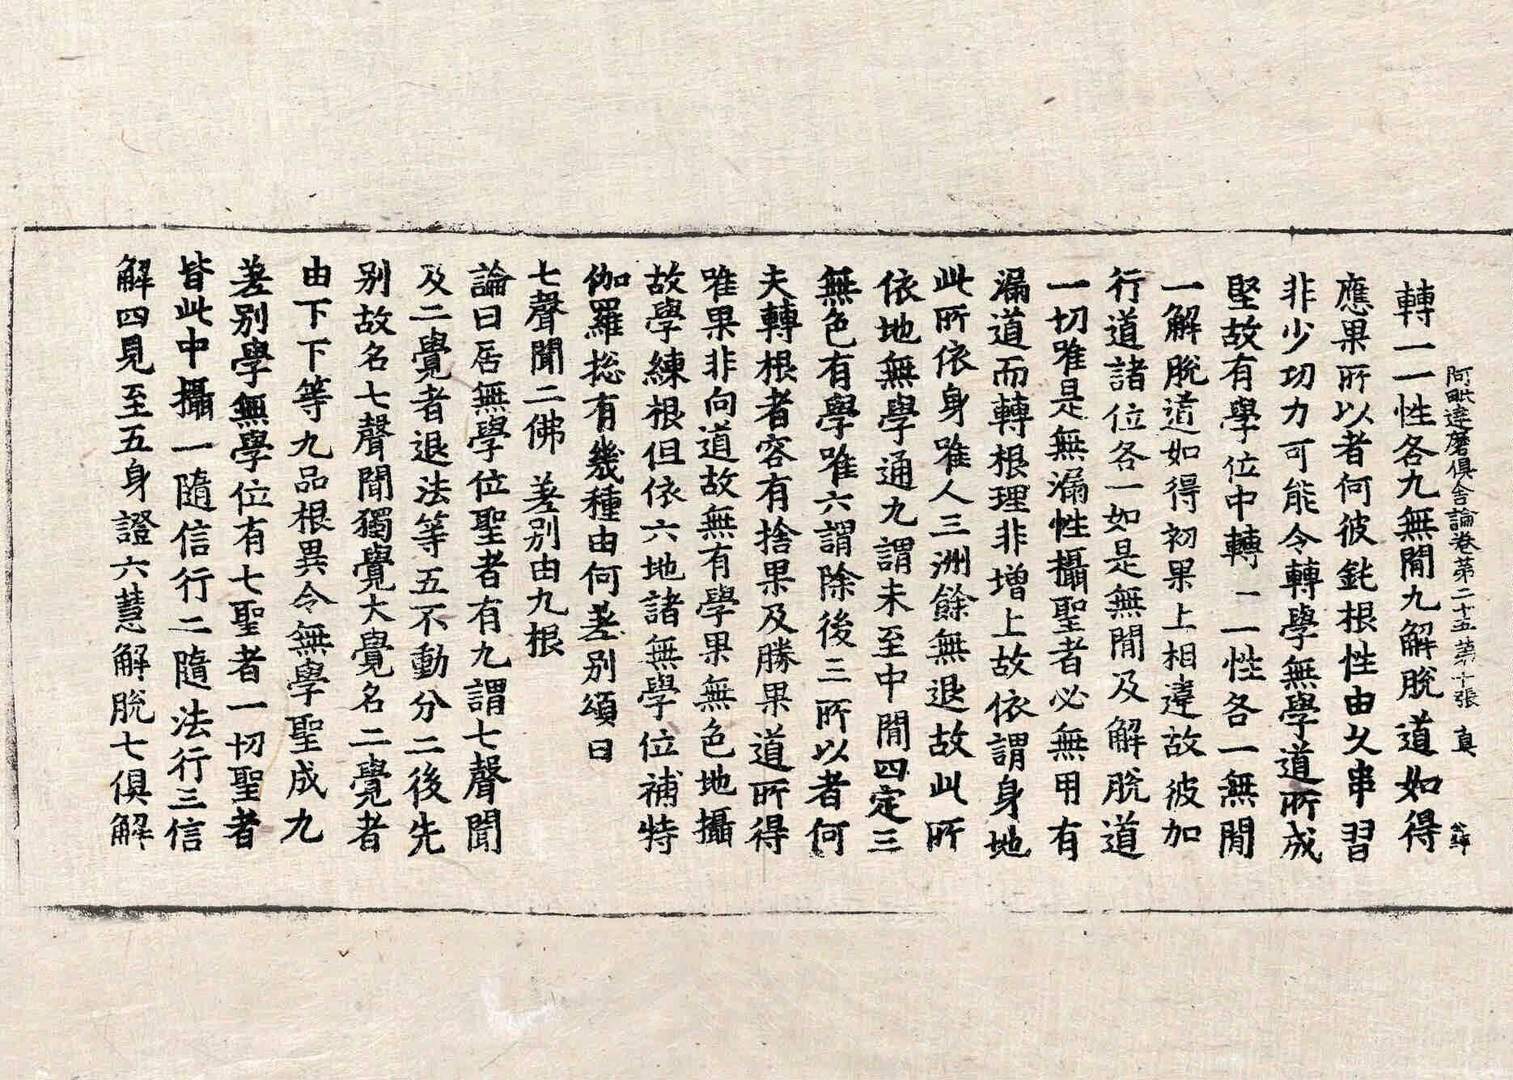 阿毗達磨俱舍論卷第二十五 第十張 真
轉一一性各九無閒九解脫道如得
應果所以者何彼鈍根性由久串習
非少功力可能令轉學無學道所成
堅故有學位中轉一一性各一無閒
一解脫道如得初果上相違故彼加
行道諸位各一如是無閒及解脫道
一切唯是無漏性攝聖者必無用有
漏道而轉根理非增上故依謂身地
此所依身唯人三洲餘無退故此所
依地無學通九謂未至中閒四定三
無色有學唯六謂除後三所以者何
夫轉根者容有捨果及勝果道所得
唯果非向道故無有學果無色地攝
故學練根但依六地諸無學位補特
伽羅捴有幾種由何差別頌曰
七聲聞二佛 差別由九根
論曰居無學位聖者有九謂七聲聞
及二覺者退法等五不動分二後先
別故名七聲聞獨覺大覺名二覺者
由下下等九品根異令無學聖成九
差別學無學位有七聖者一切聖者
皆此中攝一隨信行二隨法行三信
解四見至五身證六慧解脫七俱解